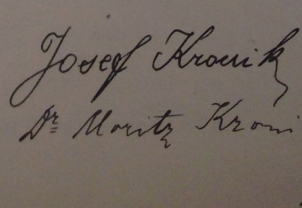 Josef Kronik
Dr Moritz Kroni